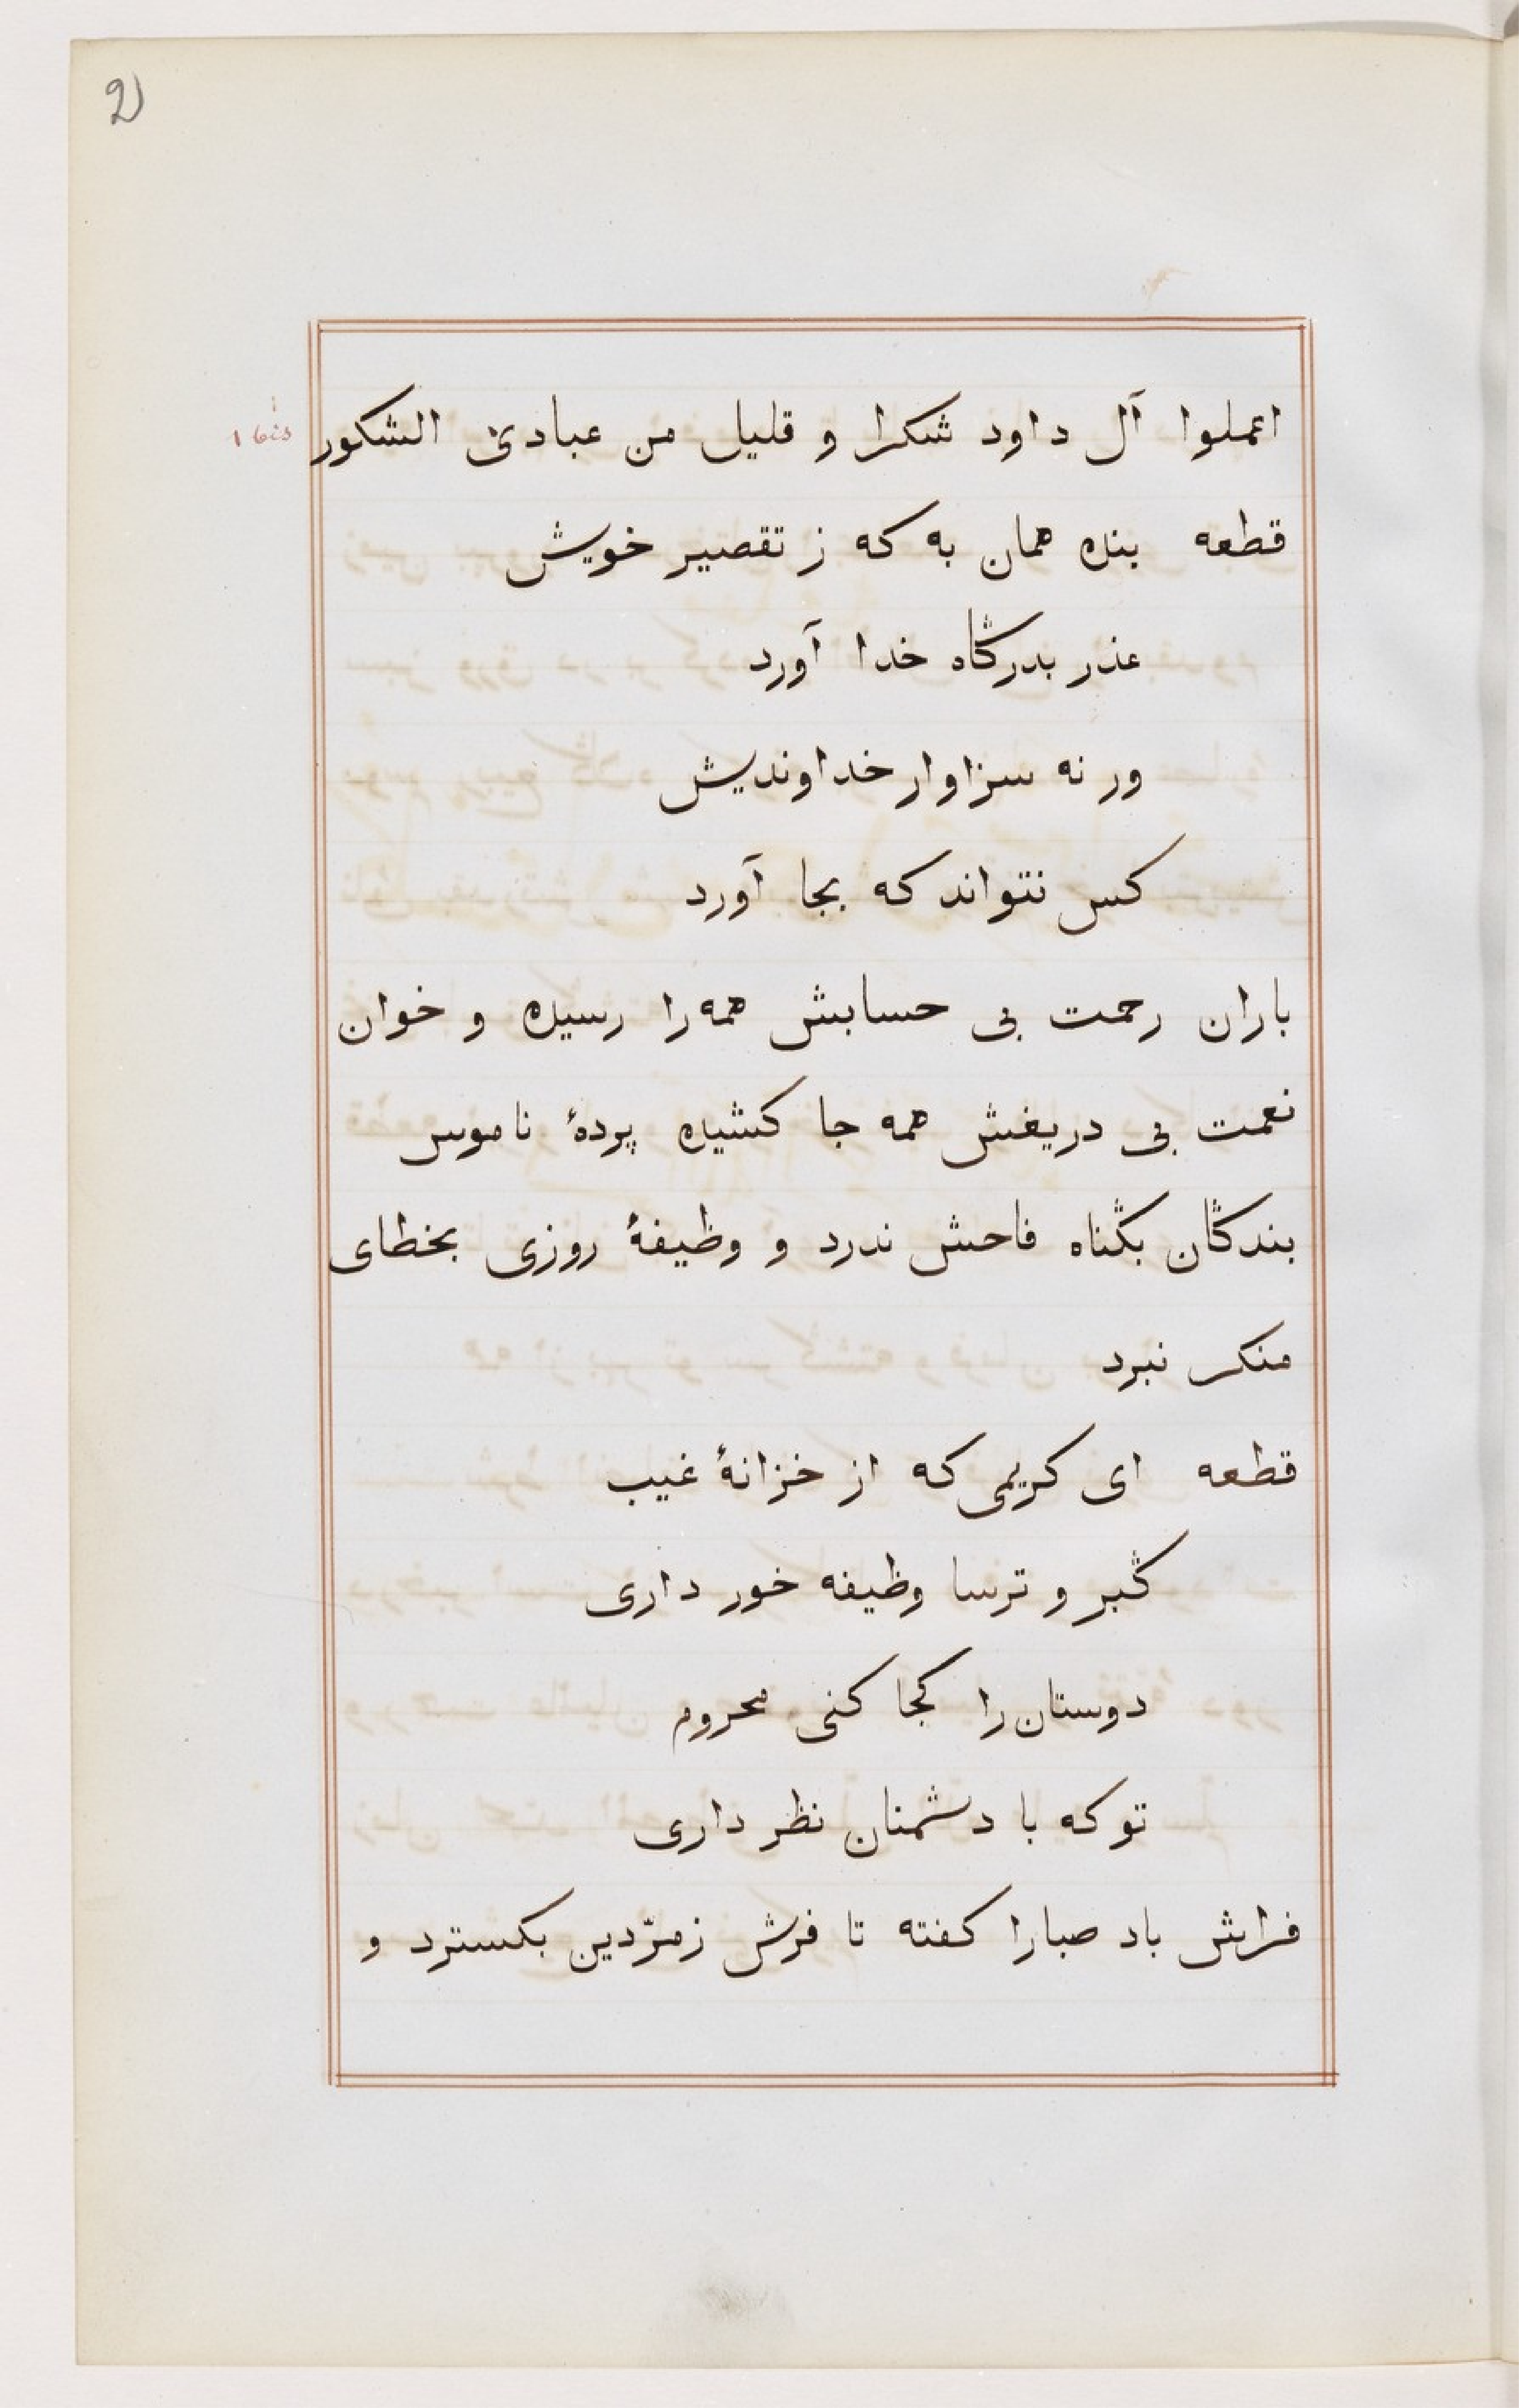 2
اعملوا آل داود شكرا و قليل من عبادئ الشكور
1 bis
قطعه بنده همان به که ز تقصیر خویش
عذر بدرگاه خدا آورد
ور نه سزاوار خداوندیش
کس نتواند که بجا آورد
باران رحمت بی حسابش همه را رسیده و خوان
نعمت بی دریغش همه جا کشیده پردهٔ ناموس
بندگان بگناه فاحش ندرد و وظیفهٔ روزی بخطای
منکر نبرد
قطعه ای کریمی که از خزانهٔ غیب
گبر و ترسا وظیفه خور داری
دوستان را کجا کنی محروم
تو که با دشمنان نظر داری
فراش باد صبارا کفته تا فرش زمرّدین بکسترد و